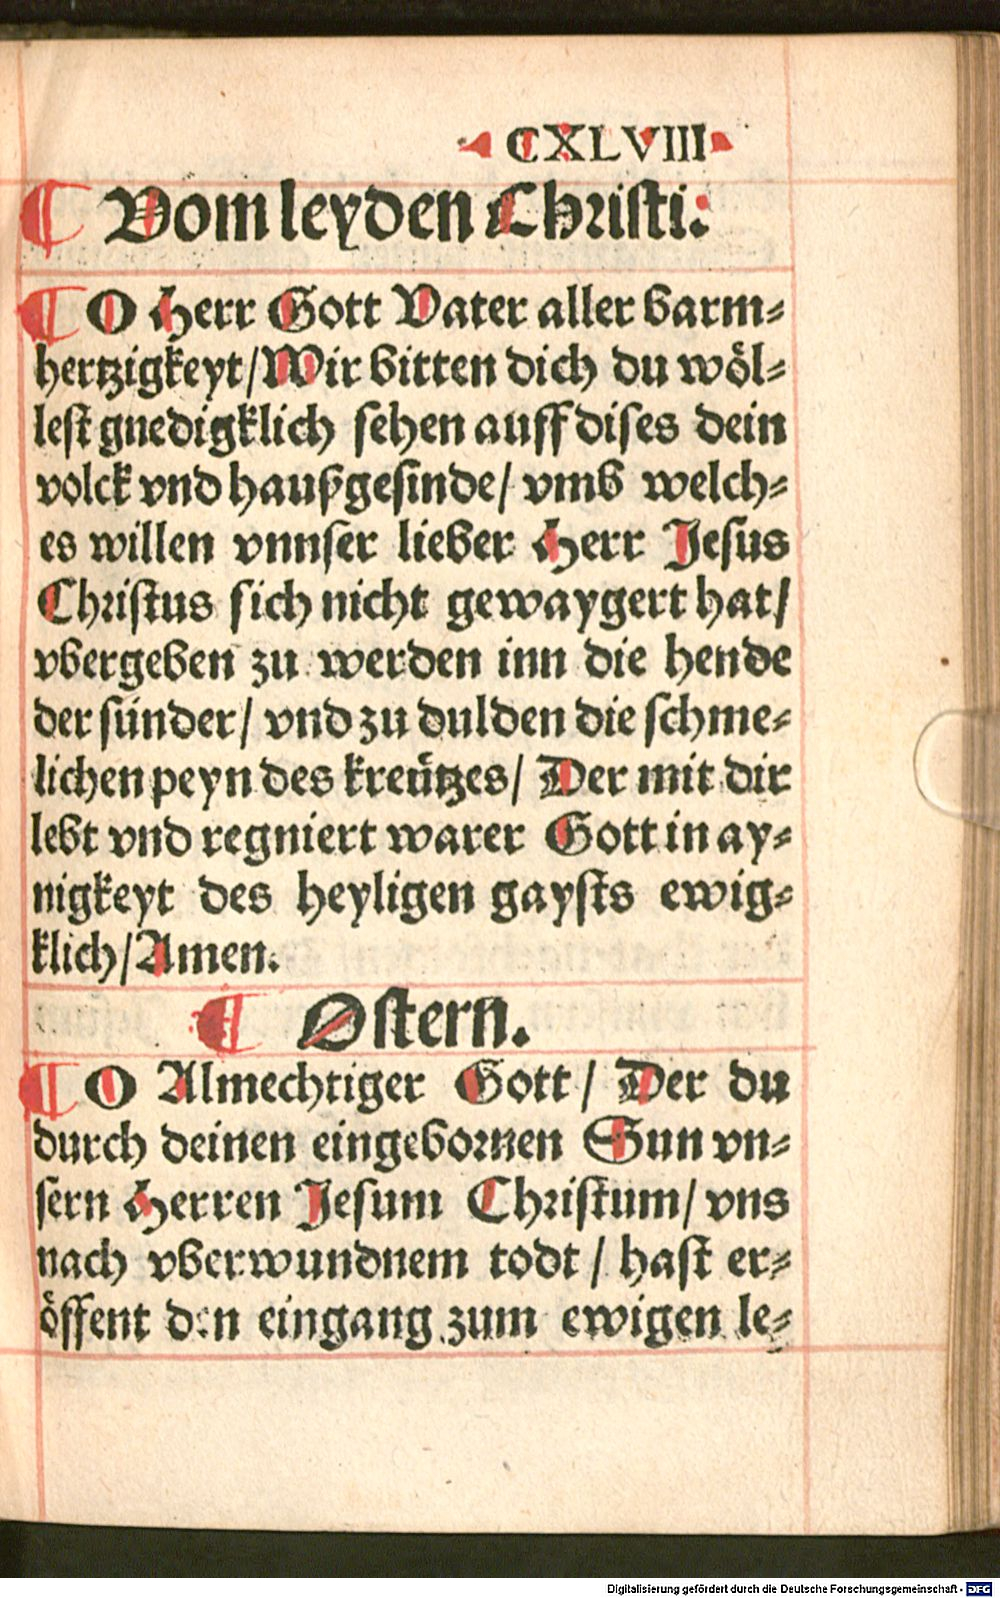 CXLVIII
¶ Vom leyden Christi.
¶ O Herr Gott Vater aller barm⸗
hertzigkeyt/Wir bitten dich du wöl⸗
lest gnedigklich sehen auff dises dein
volck vnd haußgesinde/ vmb welch⸗
es willen vnnser lieber Herr Jesus
Christus sich nicht gewaygert hat/
vbergeben zu werden inn die hende
der sünder/ vnd zu dulden die schme⸗
lichen peyn des kreützes/ Der mit dir
lebt vnd regniert warer Gott in ay⸗
nigkeyt des heyligen gaysts ewig⸗
klich/Amen.
¶ Ostern.
¶ O Almechtiger Gott/ Der du
durch deinen eingebornen Sun vn⸗
sern Herren Jesum Christum/ vns
nach vberwundnem todt/ hast er⸗
öffent den eingang zum ewigen le⸗
Digitalisierung gefördert durch die Deutsche Forschungsgemeinschaft - DFG